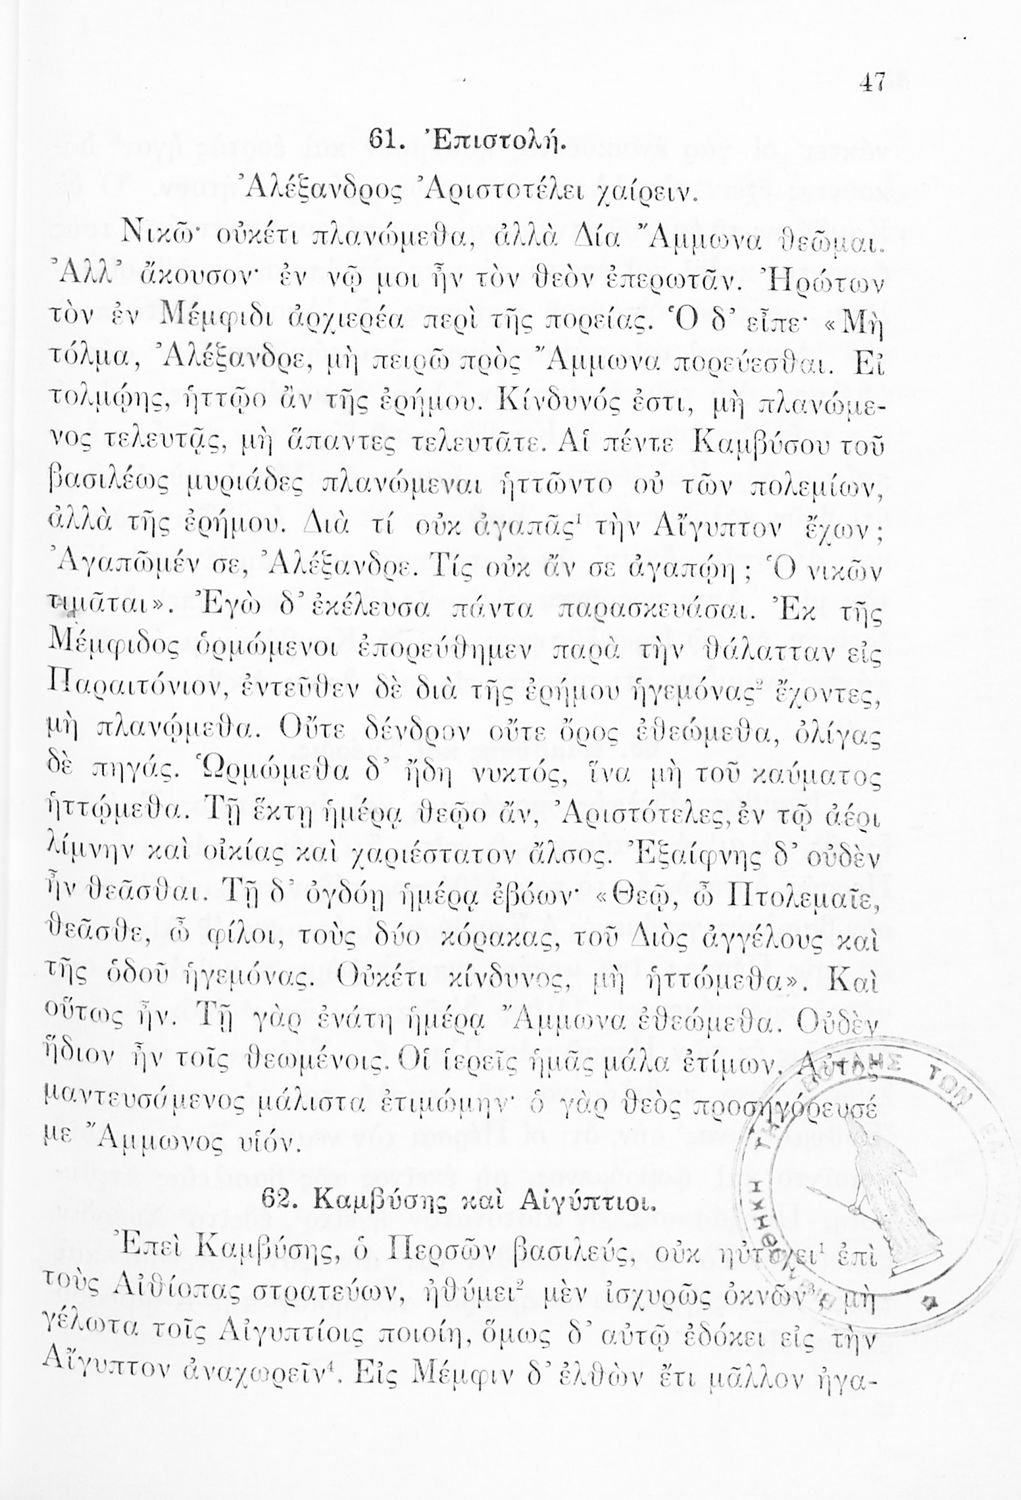 47
61. Ἐπιστολή.
Ἀλέξανδρος Ἀριστοτέλει χαίρειν.
Νικῶ· οὐκέτι πλανώμεθα, ἀλλὰ Δία Ἄμμωνα θεῶμαι.
Ἀλλ’ ἄκουσον· ἐν νῷ μοι ἦν τὸν θεὸν ἐπερωτᾶν. Ἠρώτων
τὸν ἐν Μέμφιδι ἀρχιερέα περὶ τῆς πορείας. Ὁ δ’ εἶπε· «Μὴ
τόλμα, Ἀλέξανδρε, μὴ πειρῶ πρὸς Ἄμμωνα πορεύεσθαι. Εἰ
τολμῴης, ἡττῷο ἂν τῆς ἐρήμου. Κίνδυνός ἐστι, μὴ πλανώμε-
νος τελευτᾷς, μὴ ἅπαντες τελευτᾶτε. Αἱ πέντε Καμβύσου τοῦ
βασιλέως μυριάδες πλανώμεναι ἡττῶντο οὐ τῶν πολεμίων,
ἀλλὰ τῆς ἐρήμου. Διὰ τί οὐκ ἀγαπᾷς¹ τὴν Αἴγυπτον ἔχων;
Ἀγαπῶμέν σε, Ἀλέξανδρε. Τίς οὐκ ἄν σε ἀγαπῴη; Ὁ νικῶν
τιμᾶται». Ἐγὼ δ’ ἐκέλευσα πάντα παρασκευάσαι. Ἐκ τῆς
Μέμφιδος ὁρμώμενοι ἐπορεύθημεν παρὰ τὴν θάλατταν εἰς
Παραιτόνιον, ἐντεῦθεν δὲ διὰ τῆς ἐρήμου ἡγεμόνας² ἔχοντες,
μὴ πλανῴμεθα. Οὔτε δένδρον οὔτε ὄρος ἐθεώμεθα, ὀλίγας
δὲ πηγάς. Ὡρμώμεθα δ’ ἤδη νυκτός, ἵνα μὴ τοῦ καύματος
ἡττῴμεθα. Τῇ ἕκτῃ ἡμέρᾳ θεῷο ἄν, Ἀριστότελες, ἐν τῷ ἀέρι
λίμνην καὶ οἰκίας καὶ χαριέστατον ἄλσος. Ἐξαίφνης δ’ οὐδὲν
ἦν θεᾶσθαι. Τῇ δ’ ὀγδόῃ ἡμέρᾳ ἐβόων· «Θεῶ, ὦ Πτολεμαῖε,
θεᾶσθε, ὦ φίλοι, τοὺς δύο κόρακας, τοῦ Διὸς ἀγγέλους καὶ
τῆς ὁδοῦ ἡγεμόνας. Οὐκέτι κίνδυνος, μὴ ἡττώμεθα». Καὶ
οὕτως ἦν. Τῇ γὰρ ἐνάτῃ ἡμέρᾳ Ἄμμωνα ἐθεώμεθα. Οὐδὲν
ἥδιον ἦν τοῖς θεωμένοις. Οἱ ἱερεῖς ἡμᾶς μάλα ἐτίμων. Αὐτὸς
μαντευσάμενος μάλιστα ἐτιμώμην· ὁ γὰρ θεὸς προσηγόρευσέ
με Ἄμμωνος υἱόν.
62. Καμβύσης καὶ Αἰγύπτιοι.
Ἐπεὶ Καμβύσης, ὁ Περσῶν βασιλεύς, οὐκ ηὐτύχει¹ ἐπὶ
τοὺς Αἰθίοπας στρατεύων, ἠθύμει² μὲν ἰσχυρῶς ὀκνῶν³, μὴ
γέλωτα τοῖς Αἰγυπτίοις ποιοίη, ὅμως δ’ αὐτῷ ἐδόκει εἰς τὴν
Αἴγυπτον ἀναχωρεῖν⁴. Εἰς Μέμφιν δ’ ἐλθὼν ἔτι μᾶλλον ἠγα-